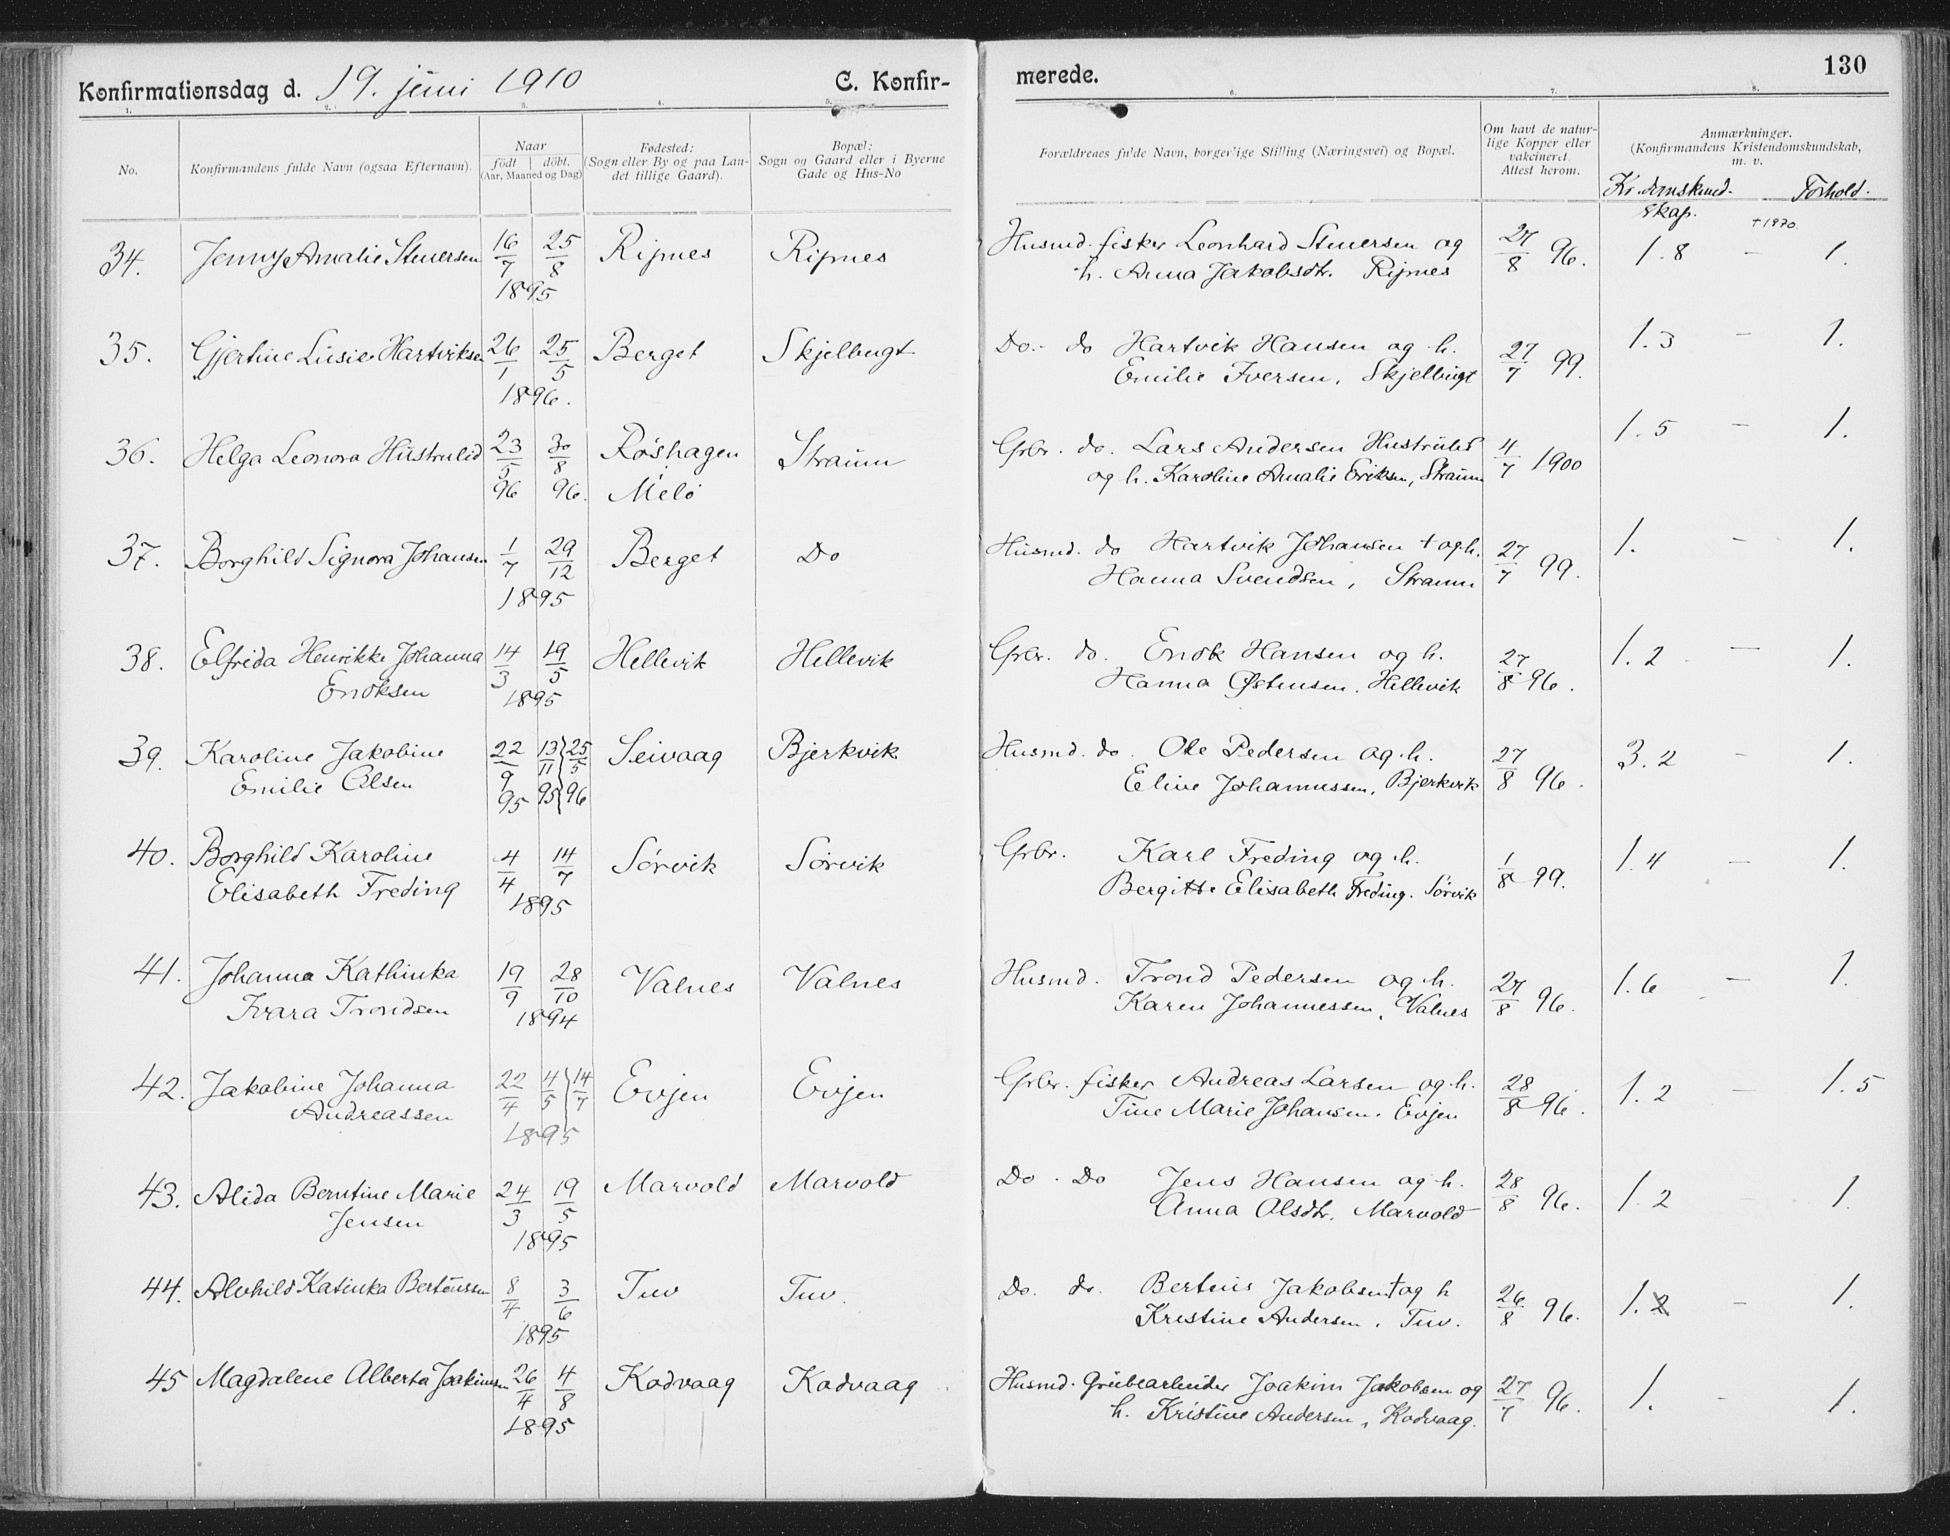 Konfirmationsdag d. 19. juni 1910 C. Konfir-
merede. 130
1. 2. 3. 4. 5. 6. 7. 8.
No.
Konfirmandens fulde Navn (ogsaa Efternavn).
Naar
født | döbt.
(Aar, Maaned og Dag)
Fødested:
(Sogn eller By og paa Lan-
det tillige Gaard).
Bopæl:
Sogn og Gaard eller i Byerne
Gade og Hus-No
Forældrenes fulde Navn, borgerlige Stilling (Næringsvei) og Bopæl.
Om havt de natur-
lige Kopper eller
vakcineret.
Attest herom.
Anmærkninger.
(Konfirmandens Kristendomskundskab,
m. v.
Kr.domskund- Forhold.
skap. †1970.
34. Jenny Amalie Stenersen 16/7 25/8 Ripnes Ripnes Husmd. fisker Leonhard Stenersen og 27/8 96. 1.8 – 1.
1895 h. Anna Jakobsdtr. Ripnes
35. Gjertine Lusie Hartviksen 26/1 25/5 Berget Skjelbugt Do.- do Hartvik Hansen og h. 27/7 99. 1.3 – 1.
1896. Emilie Iversen, Skjelbugt
36. Helga Leonora Hustrulid 23/5 30/8 Røshagen Straum Grbr. do. Lars Andersen Hustrulid 4/7 1900 1.5 – 1.
96 96. Melö og h. Karoline Amalie Eriksen, Straum
37. Borghild Signora Johansen 1/7 29/12 Berget Do Husmd. do Hartvik Johansen † og h. 27/7 99. 1. – 1.
1895 Hanna Svendsen, Straum
38. Elfrida Henrikke Johanna 14/3 19/5 Hellevik Hellevik Grbr. do. Enok Hansen og h. 27/8 96. 1.2 – 1.
Enoksen 1895 Hanna Østensen. Hellevik
39. Karoline Jakobine 22/9 13/11 } 25/5 Seivaag Bjerkvik Husmd. do. Ole Pedersen og h. 27/8 96. 3.2 – 1.
Emilie Olsen 95 95 } 96 Eline Johannessen, Bjerkvik
40. Borghild Karoline 4/4 14/7 Sörvik Sörvik Grbr. Karl Freding og h. 1/8 99. 1.4 – 1.
Elisabeth Freding 1895 Bergitte Elisabeth Freding. Sörvik
41. Johanna Kathinka 19/9 28/10 Valnes Valnes Husmd. Trond Pedersen og h. 27/8 96. 1.6 – 1.
Ivara Trondsen 1894 Karen Johannessen, Valnes
42. Jakobine Johanna 22/4 4/5 } 14/7 Evjen Evjen Grbr. fisker Andreas Larsen og h. 28/8 96. 1.2 – 1.5
Andreassen 1895 Tine Marie Johansen. Evjen
43. Alida Berntine Marie 24/3 19/5 Marvold Marvold Do. Do Jens Hansen og h. 28/8 96. 1.2 – 1.
Jensen 1895 Anna Olsdtr. Marvold
44. Alvhild Katinka Bertëussen 8/4 3/6 Tuv Tuv. Do. do. Berteus Jakobsen † og h 26/8 96. 1.2 – 1.
1895 Kristine Andersen. Tuv.
45 Magdalene Alberta Joakimsen 26/4 4/8 Kodvaag Kodvaag Husmd. Grubearbeider Joakim Jakobsen og 27/7 96. 1. – 1.
1895 h. Kristine Andersen, Kodvaag.